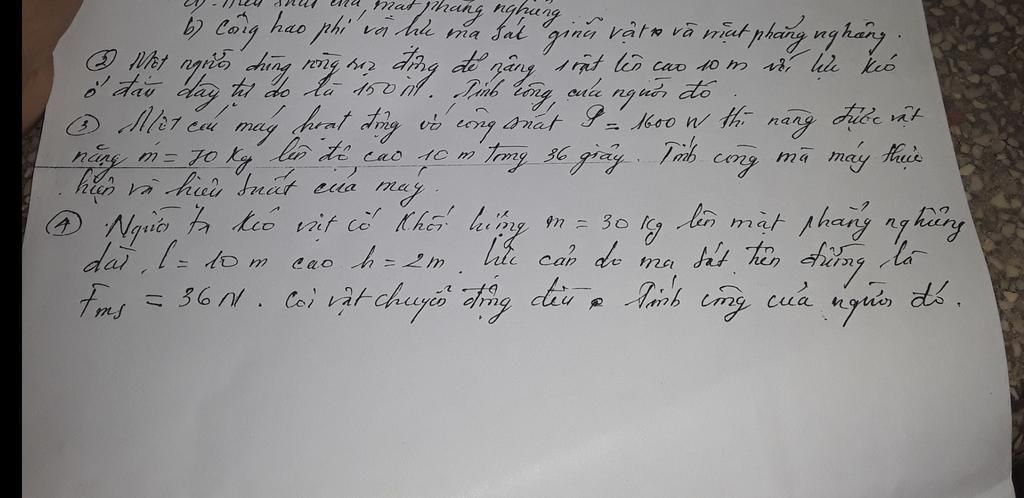 a) Hiệu suất của mặt phẳng nghiêng
b) Công hao phí và lực ma sát giữa vật và mặt phẳng nghiêng.
② Một người dùng ròng rọc động để nâng 1 vật lên cao 10 m với lực kéo
ở đầu dây tự do là 150N. Tính công của người đó.
③ Một cái máy hoạt động với công suất P = 1600 W thì nâng được vật
nặng m = 70 kg lên độ cao 10 m trong 36 giây. Tính công mà máy thực
hiện và hiệu suất của máy.
④ Người ta kéo vật có khối lượng m = 30 kg lên mặt phẳng nghiêng
dài l = 10 m cao h = 2m. lực cản do ma sát trên đường là
Fms = 36N. Coi vật chuyển động đều. Tính công của người đó.